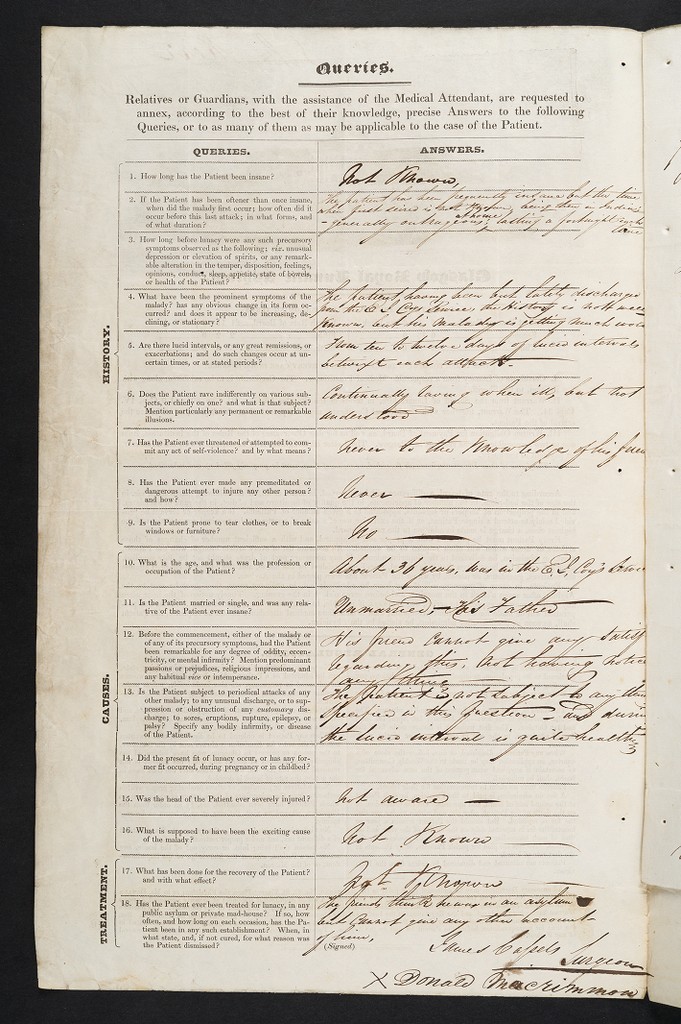 Queries.
Relatives or Guardians, with the assistance of the Medical Attendant, are requested to
annex, according to the best of their knowledge, precise Answers to the following
Queries, or to as many of them as may be applicable to the case of the Patient.
QUERIES.
ANSWERS.
HISTORY.
1. How long has the Patient been insane?
Not Known,
2. If the Patient has been oftener than once insane,
when did the malady first occur; how often did it
occur before this last attack; in what forms, and
of what duration?
The patient has been frequently insane but the time
when first seized is not known, being then in India
at home,
- generally outrageous, lasting a fortnight
3. How long before lunacy were any such precursory
symptoms observed as the following; viz. unusual
depression or elevation of spirits, or any remark-
able alteration in the temper, disposition, feelings,
opinions, conduct, sleep, appetite, state of bowels,
or health of the Patient?
4. What have been the prominent symptoms of the
malady? has any obvious change in its form oc-
curred? and does it appear to be increasing, de-
clining, or stationary?
The patient having been but lately discharged
from the E. I. Coys Service, his History is not
Known, but his Malady is getting much
5. Are there lucid intervals, or any great remissions, or
exacerbations; and do such changes occur at un-
certain times, or at stated periods?
From ten to twelve days of lucid intervals
betwixt each attack.
6. Does the Patient rave indifferently on various sub-
jects, or chiefly on one? and what is that subject?
Mention particularly any permanent or remarkable
illusions.
Continually raving when ill, but not
understood
7. Has the Patient ever threatened or attempted to com-
mit any act of self-violence? and by what means?
Never to the Knowledge of his
8. Has the Patient ever made any premeditated or
dangerous attempt to injure any other person?
and how?
Never
9. Is the Patient prone to tear clothes, or to break
windows or furniture?
No
CAUSES.
10. What is the age, and what was the profession or
occupation of the Patient?
About 36 years, was in the E. I. Coy's
11. Is the Patient married or single, and was any rela-
tive of the Patient ever insane?
Unmarried, - His Father
12. Before the commencement, either of the malady or
of any of its precursory symptoms, had the Patient
been remarkable for any degree of oddity, eccen-
tricity, or mental infirmity? Mention predominant
passions or prejudices, religious impressions, and
any habitual vice or intemperance.
His friend cannot give any
regarding this, not having
any thing
13. Is the Patient subject to periodical attacks of any
other malady; to any unusual discharge, or to sup-
pression or obstruction of any customary dis-
charge; to sores, eruptions, rupture, epilepsy, or
palsy? Specify any bodily infirmity, or disease
of the Patient.
The patient is not subject to any
specified in this question - and
the lucid interval is quite healthy
14. Did the present fit of lunacy occur, or has any for-
mer fit occurred, during pregnancy or in childbed?
15. Was the head of the Patient ever severely injured?
Not aware
16. What is supposed to have been the exciting cause
of the malady?
Not Known
TREATMENT.
17. What has been done for the recovery of the Patient?
and with what effect?
Not Known
18. Has the Patient ever been treated for lunacy, in any
public asylum or private mad-house? If so, how
often, and how long on each occasion, has the Pa-
tient been in any such establishment? When, in
what state, and, if not cured, for what reason was
the Patient dismissed?
The friends think he was in an asylum
but cannot give any other account
of him,
(Signed)
James Cassels Surgeon
X Donald MacCrimmon